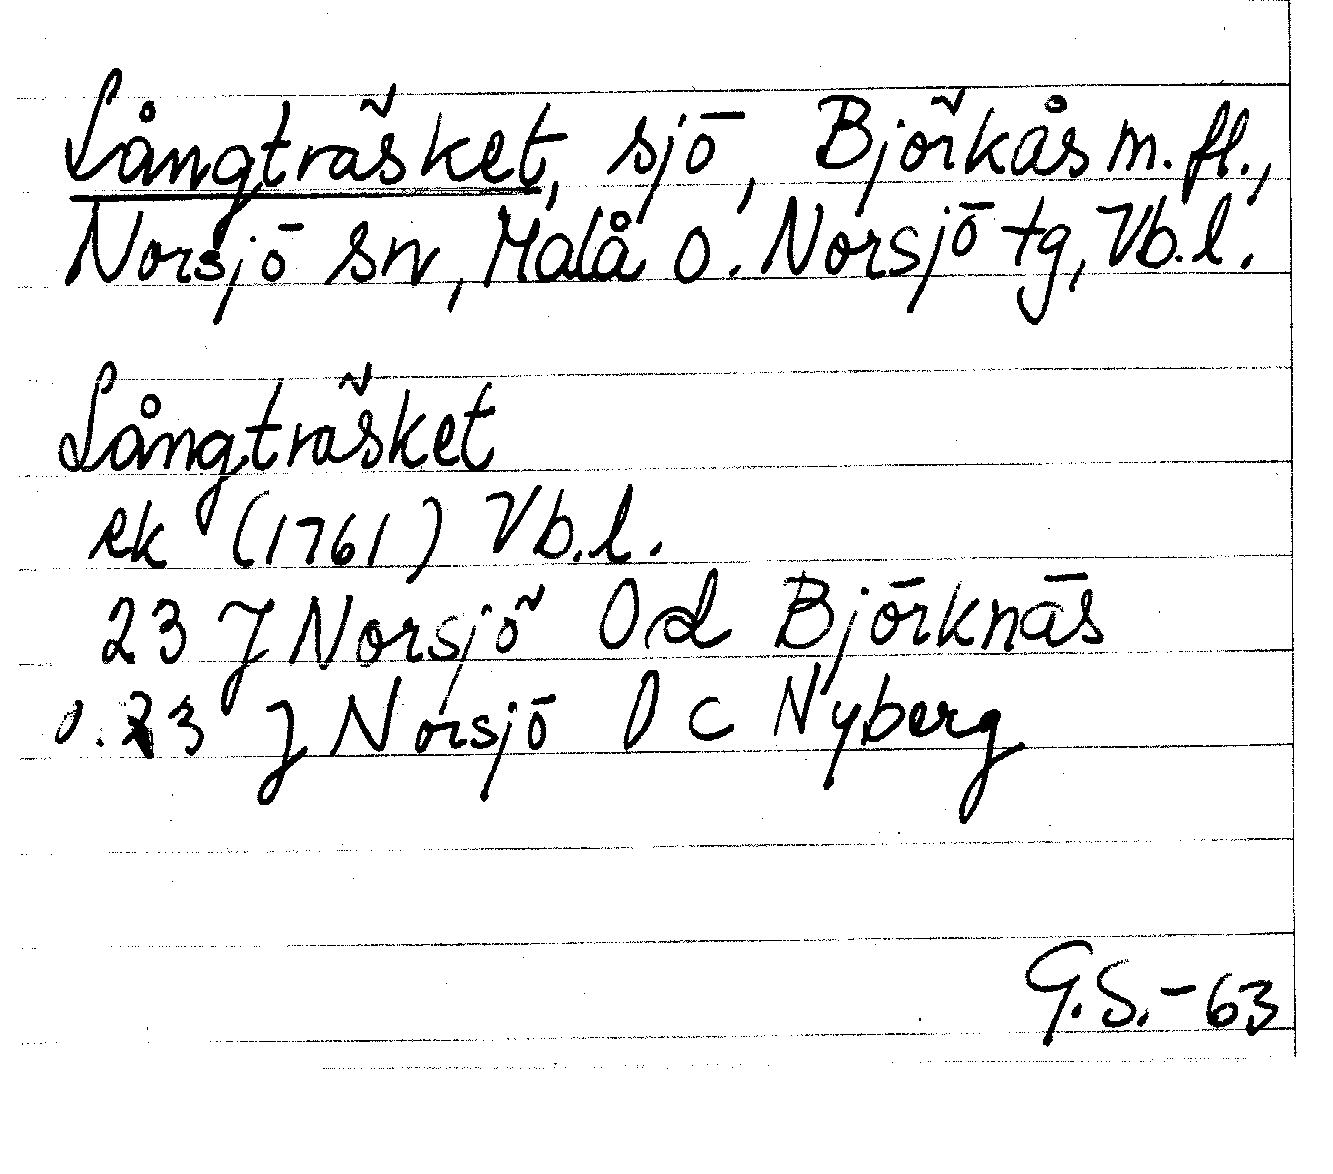 Långträsket, sjö, Björkås m. fl.,
Norsjö sn, Malå o. Norsjö tg, Vb.l.
Långträsket
rk (1761) Vb.l.
23 J Norsjö 0d Björknäs
o. 23 J Norsjö 0c Nyberg
G.S.-63